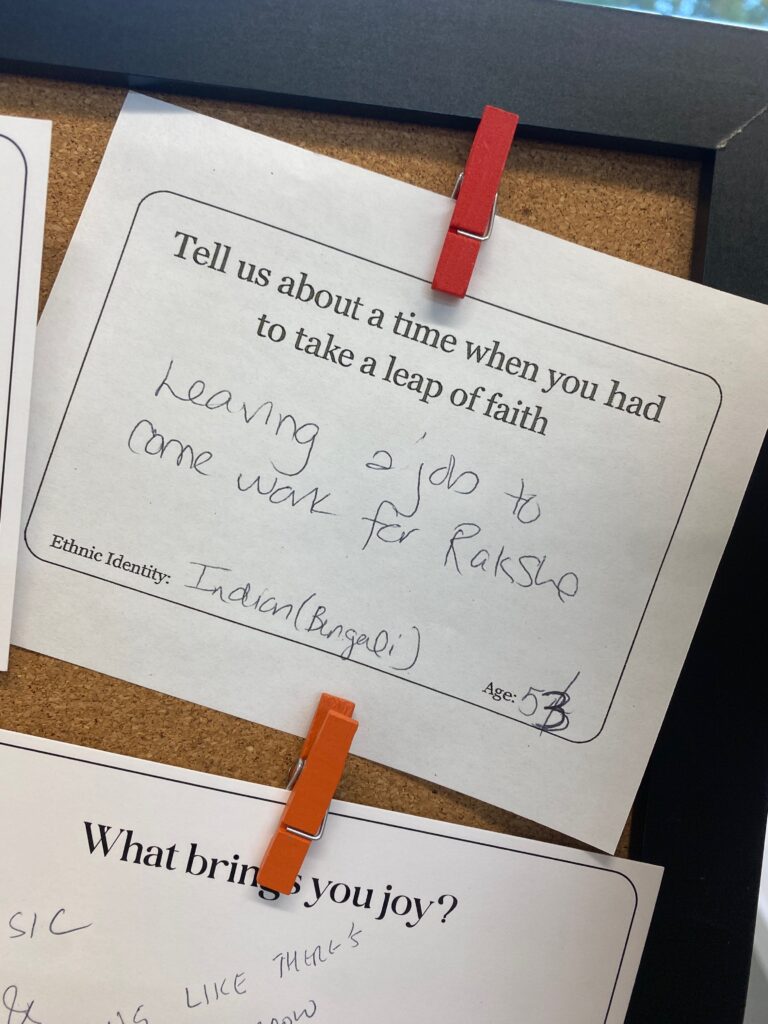 Tell us about a time when you had
to take a leap of faith
Leaving a job to
come work for Raksha
Ethnic Identity: Indian (Bengali)
Age: 53
What brings you joy?
SIC
LIKE THERE'S